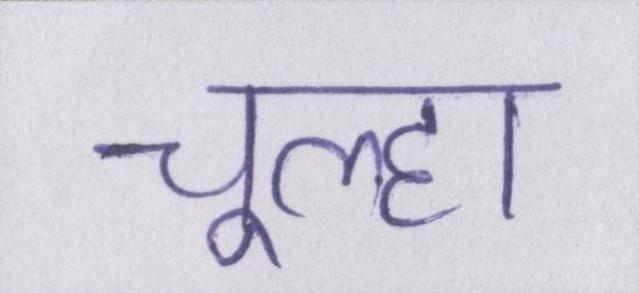 चूल्हा